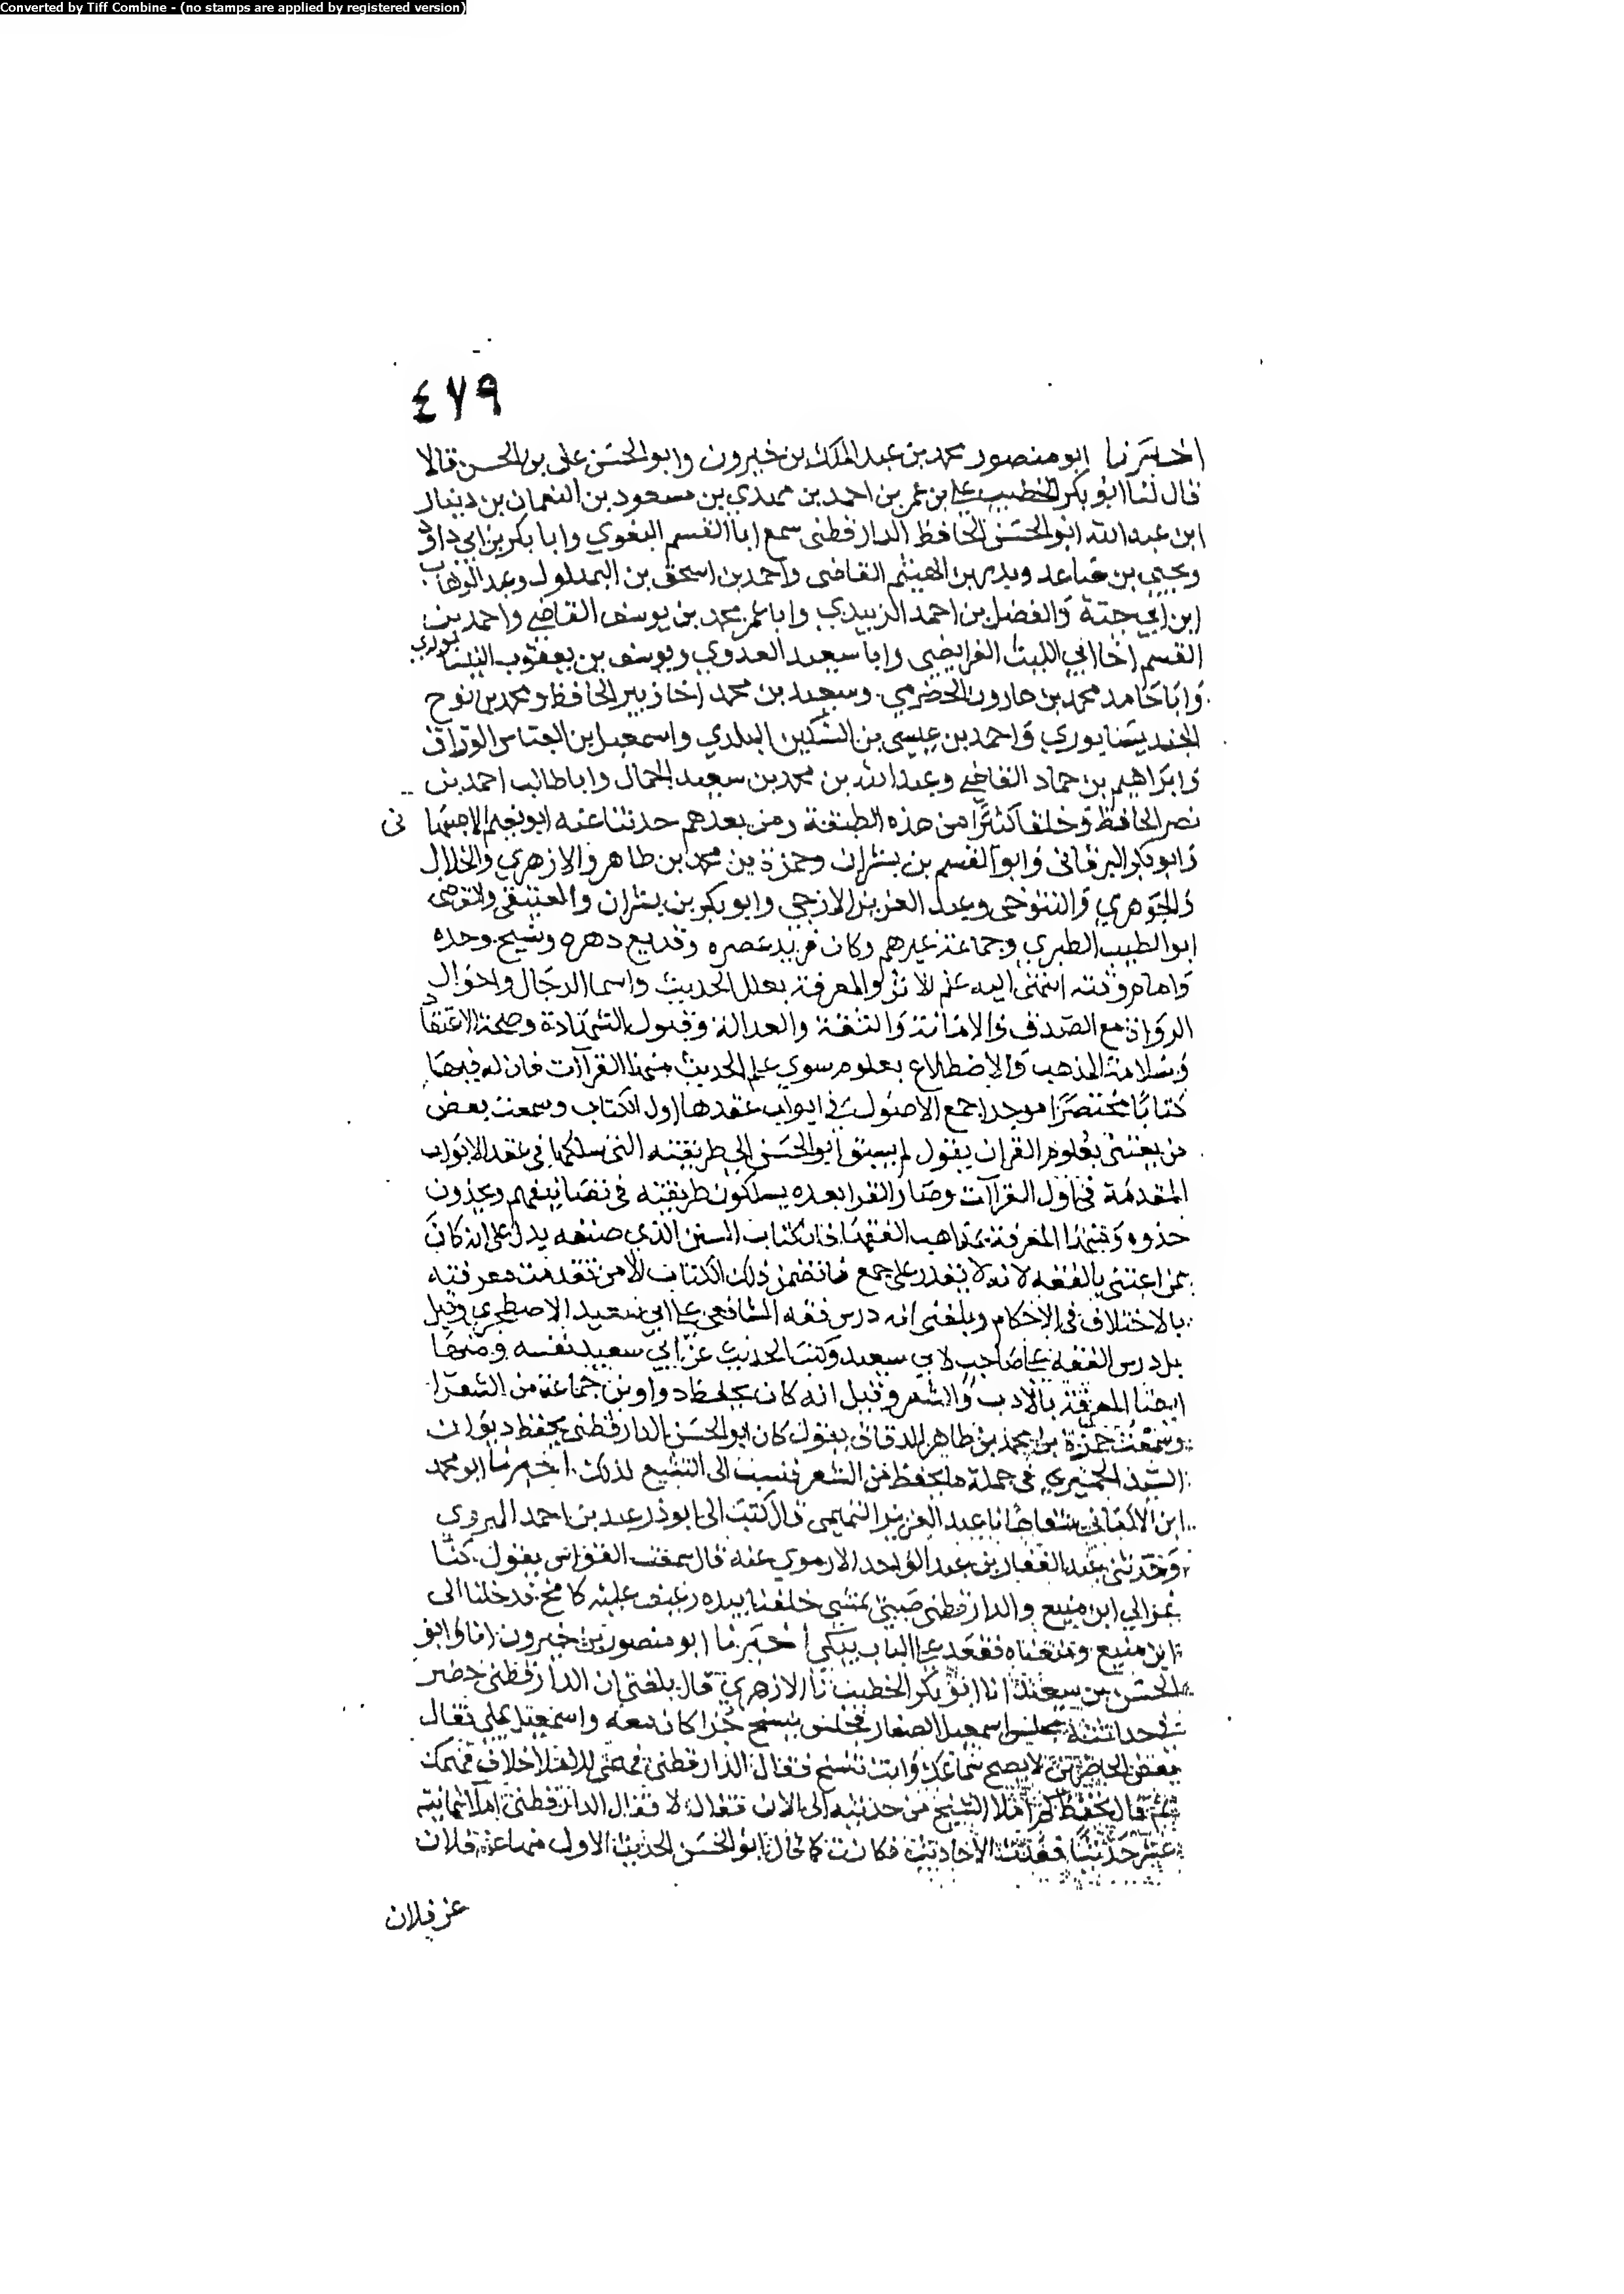 Converted by Tiff Combine - (no stamps are applied by registered version)
٤٧٩
اخبرنا ابو منصور محمد بن عبد الملك بن خيرون وابو الحسن علي بن الحسن قالا
قال لنا ابو بكر الخطيب علي بن عمر بن احمد بن مهدي بن مسعود بن النعمان بن دينار
ابن عبد الله ابو الحسن الحافظ الدارقطني سمع ابا القسم البغوي وابا بكر بن ابي داود
ويحيى بن صاعد وبدر بن الهيثم القاضي واحمد بن اسحق بن البهلول وعبد الوهاب
ابن ابي حية والفضل بن احمد الزبيدي وابا عمر محمد بن يوسف القاضي واحمد بن
القسم اخا ابي الليث الفرايضي وابا سعيد العدوي ويوسف بن يعقوب النيسابوري
وابا حامد محمد بن هارون الحضرمي وسعيد بن محمد اخا زبير الحافظ ومحمد بن نوح
الجنديسابوري واحمد بن عيسى بن السكين البلدي واسمعيل بن العباس الوراق
وابراهيم بن حماد القاضي وعبد الله بن محمد بن سعيد الجمال وابا طالب احمد بن
نصر الحافظ وخلقا كثيرا من هذه الطبقة ومن بعدهم حدثنا عنه ابو نعيم الاصبهاني
وابو بكر البرقاني وابو القسم بن بشران وحمزة بن محمد بن طاهر والازهري والخلال
والجوهري والتنوخي وعبد العزيز الازجي وابو بكر بن بشران والعتيقي والقاضي
ابو الطيب الطبري وجماعة غيرهم وكان فريد عصره وقريع دهره ونسيج وحده
وامام وقته انتهى اليه علم الاثر والمعرفة بعلل الحديث واسما الرجال واحوال
الرواة مع الصدق والامانة والثقة والعدالة وقبول الشهادة وصحة الاعتقاد
وسلامة المذهب والاضطلاع بعلوم سوى علم الحديث منها القراآت فان له فيها
كتابا مختصرا موجزا جمع الاصول في ابواب عقدها اول الكتاب وسمعت بعض
من يعتني بعلوم القران يقول لم يسبق ابو الحسن الى طريقته التي سلكها في عقد الابواب
المقدمة في اول القراآت وصار القرا بعده يسلكون طريقته في تصانيفهم ويحذون
حذوه ومنها المعرفة بمذاهب الفقها فان كتاب السنن الذي صنفه يدل على انه كان
ممن اعتنى بالفقه لانه لا يقدر على جمع ما تضمن ذلك الكتاب الا من تقدمت معرفته
بالاختلاف في الاحكام وبلغني انه درس فقه الشافعي على ابي سعيد الاصطخري وقيل
بل درس الفقه على صاحب لابي سعيد وكتب الحديث عن ابي سعيد نفسه ومنها
ايضا المعرفة بالادب والشعر وقيل انه كان يحفظ دواوين جماعة من الشعرا
وسمعت حمزة بن محمد بن طاهر الدقاق يقول كان ابو الحسن الدارقطني يحفظ ديوان
السيد الحميري في جملة ما يحفظ من الشعر فنسب الى التشيع لذلك اخبرنا ابو محمد
ابن الاكفاني شفاها نا عبد العزيز التميمي قال كتب الى ابو ذر عبد بن احمد الهروي
وحدثني عبد الغفار بن عبد الواحد الارموي عنه قال سمعت القواس يقول كنا
نمر الى ابن منيع والدارقطني صبي يمشي خلفنا بيده رغيف عليه كامخ فدخلنا الى
ابن منيع ومنعناه فقعد على الباب يبكي اخبرنا ابو منصور بن خيرون انا وابو
الحسن بن سعيد انا ابو بكر الخطيب نا الازهري قال بلغني ان الدارقطني حضر
في حداثته مجلس اسمعيل الصفار فجلس ينسخ جزا كان معه واسمعيل يملي فقال
بعض الحاضرين لا يصح سماعك وانت تنسخ فقال الدارقطني فهمي للاملا خلاف فهمك
ثم قال تحفظ كم املا الشيخ من حديث الى الان فقال لا فقال الدارقطني املا ثمانية
عشر حديثا فعدت الاحاديث فكانت كما قال ابو الحسن الحديث الاول منها عن فلان
عن فلان